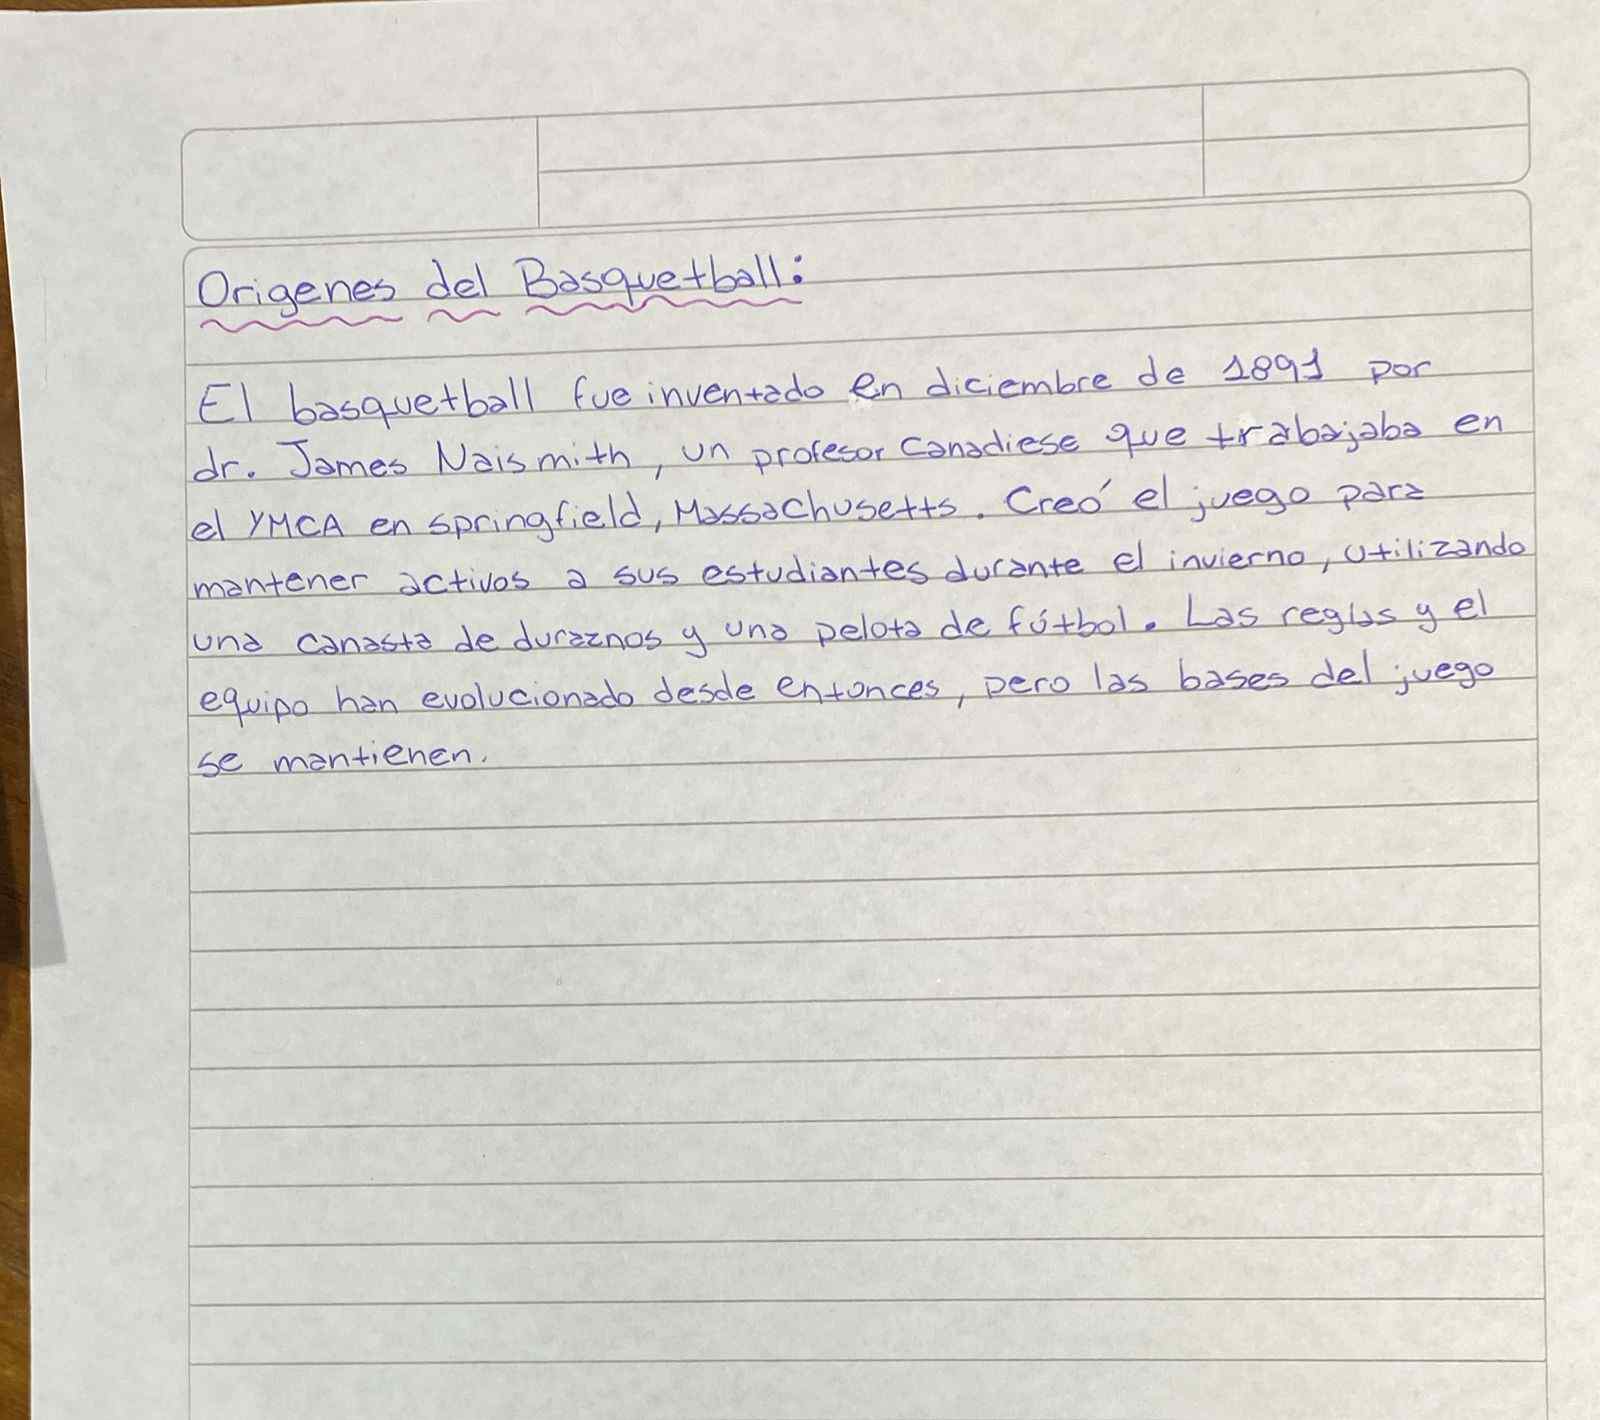 Origenes del Basquetball:
El basquetball fue inventado en diciembre de 1891 por
dr. James Naismith, un profesor canadiese que trabajaba en
el YMCA en springfield, Massachusetts. Creó el juego para
mantener activos a sus estudiantes durante el invierno, utilizando
una canasta de duraznos y una pelota de fútbol. Las reglas y el
equipo han evolucionado desde entonces, pero las bases del juego
se mantienen.